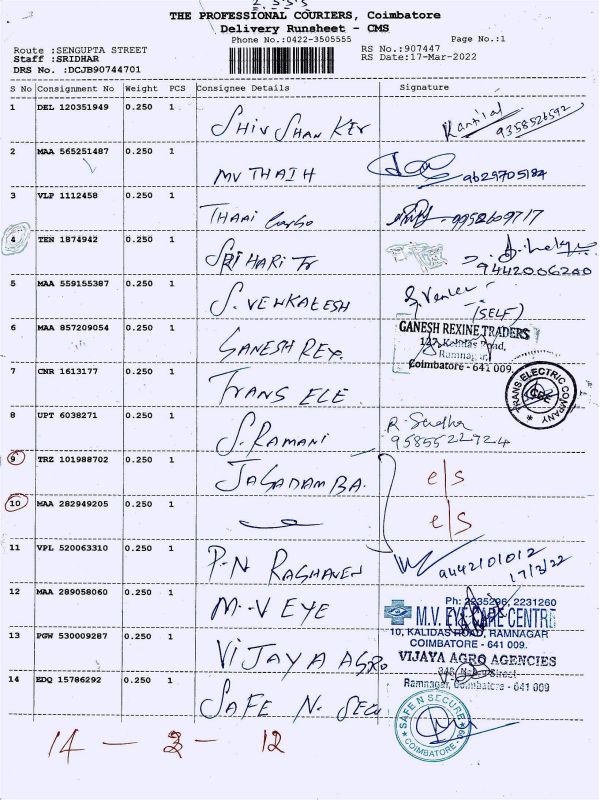 2.555
THE PROFESSIONAL COURIERS, Coimbatore
Delivery Runsheet - CMS
Phone No.:0422-3505555 Page No.:1
Route :SENGUPTA STREET RS No.:907447
Staff :SRIDHAR RS Date:17-Mar-2022
DRS No. :DCJB90744701
S No Consignment No Weight PCS Consignee Details Signature
1 DEL 120351949 0.250 1 SHIV SHAN KER Kantilal 9358526592
2 MAA 565251487 0.250 1 MV THAIH 9629705184
3 VLP 1112458 0.250 1 THAAI Cargo 9952609717
4 TEN 1874942 0.250 1 SRI HARI Tr 9442006200
5 MAA 559155387 0.250 1 S. VENKATESH S. Venket (SELF)
6 MAA 857209054 0.250 1 GANESH REX. GANESH REXINE TRADERS
127, Kalidas Road,
Ramnagar,
Coimbatore - 641 009.
7 CNR 1613177 0.250 1 TRANS ELE TRANS ELECTRIC COMPANY CBE
8 UPT 6038271 0.250 1 S. RAMANI R. Sudha
9585522724
9 TRZ 101988702 0.250 1 JAGADAMBA. e/s
10 MAA 282949205 0.250 1 e/s
11 VPL 520063310 0.250 1 P.N RAGHAVEN 9442101012
17/3/22
12 MAA 289058060 0.250 1 M.V EYE Ph: 2235296, 2231260
M.V. EYE CARE CENTRE
10, KALIDAS ROAD, RAMNAGAR
COIMBATORE - 641 009.
13 PGW 530009287 0.250 1 VIJAYA AGRO VIJAYA AGRO AGENCIES
Street
Ramnagar, Coimbatore - 641 009
14 EDQ 15786292 0.250 1 SAFE N. SECU SAFE N SECURE COIMBATORE
14 - 2 - 12